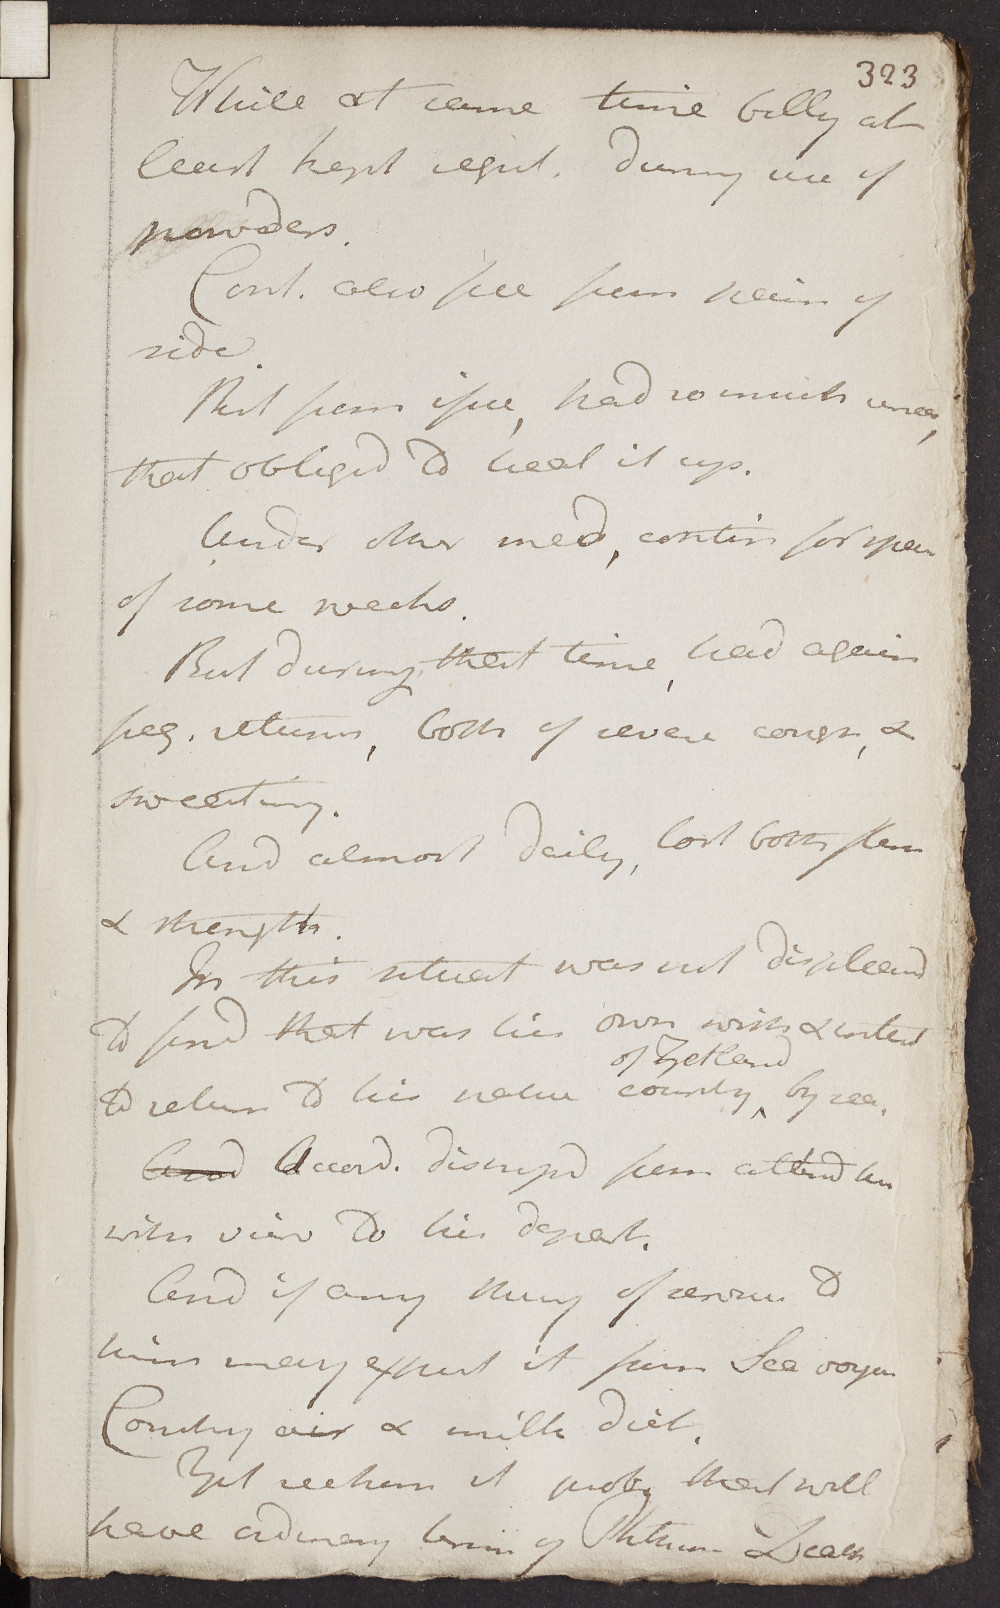 323
While at same time belly at
least kept regul. During use of
powders.
Cont. also free from pain of
side.
But from issue, had so much uneas,
that obliged to heal it up.
Under other med, contin for space
of some weeks.
But during that time, had again
freq. returns, both of severe cough, &
sweating.
And almost daily, lost both flesh
& strength.
In this situat was not displeased
to find that was his own wish & intent
of Zetland
to return to his native country, by sea.
And Accord. dismissd from attend here
with view to his depart.
And if any thing of service to
him may expect it from Sea voyage
Country air & milk diet.
Yet reckon it proby that will
have ordinary termin of Phthisis Death